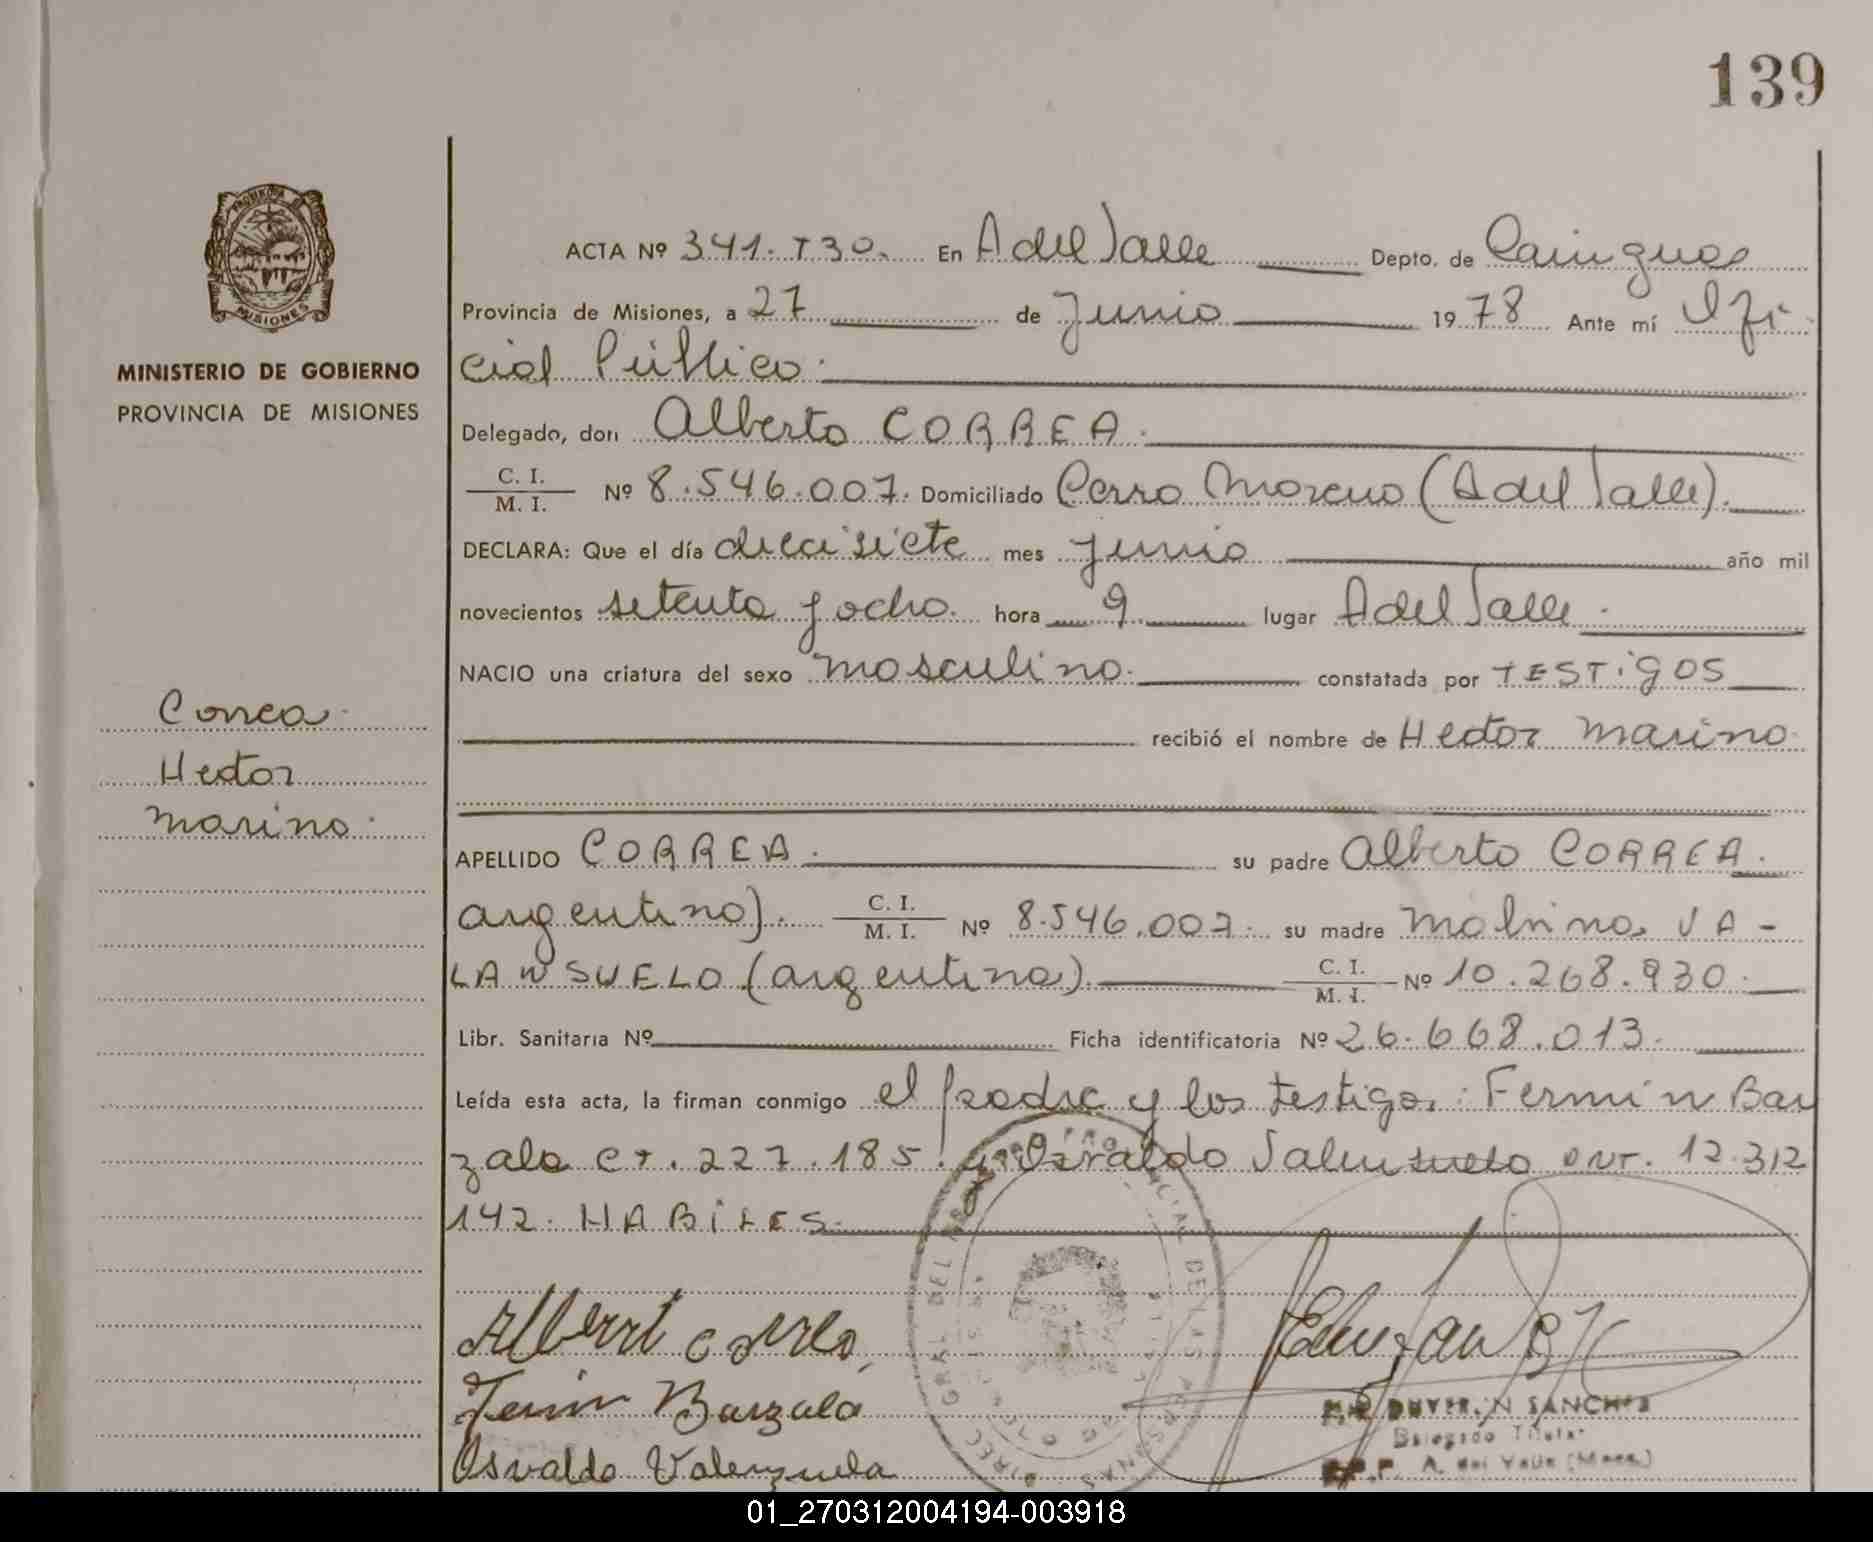 139
PROVINCIA DE
MISIONES
MINISTERIO DE GOBIERNO
PROVINCIA DE MISIONES
Correa.
Hector
Marino.
ACTA Nº 341. T30. En A del Valle Depto. de Cainguas
Provincia de Misiones, a 27 de Junio 1978 Ante mí Ofi-
cial Público.
Delegado, don Alberto CORREA.
C. I.
M. I. Nº 8.546.007. Domiciliado Cerro Moreno (A del Valle).
DECLARA: Que el día diecisiete mes junio año mil
novecientos setenta y ocho. hora 9 lugar A del Valle.
NACIO una criatura del sexo masculino. constatada por TESTIGOS
recibió el nombre de Hector Marino
APELLIDO CORREA. su padre Alberto CORREA.
argentino). C. I.
M. I. Nº 8.546.007. su madre VA-
LANSUELO (argentina). C. I.
M. I. Nº 10.268.930.
Libr. Sanitaria Nº Ficha identificatoria Nº 26.668.013.
Leída esta acta, la firman conmigo el padre y los testigos: Fermin Bar
zala CI. 227.185. y Osvaldo 12.312
142. HABILES.
Albert Correa
Fermin Barzala
Osvaldo Valenzuela
SANCHEZ
Delegado Titular
A. del Valle (Mnes.)
01_270312004194-003918